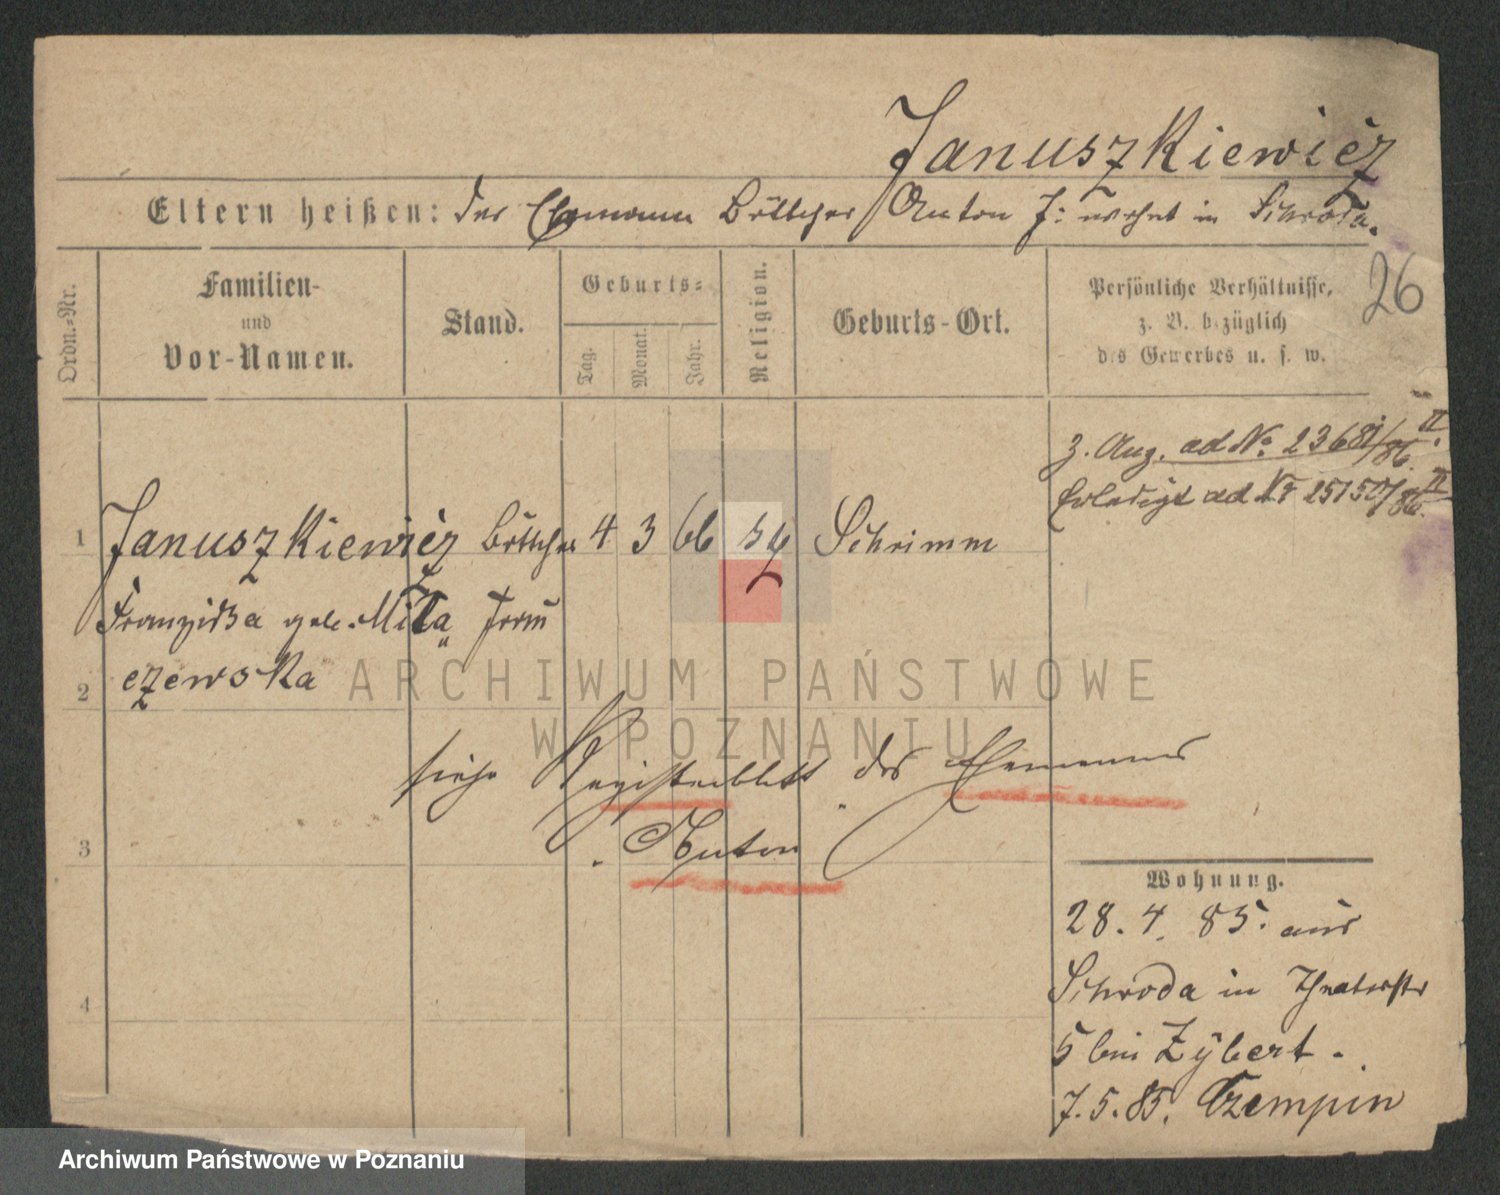 Januszkiewicz
Eltern heißen: Der Ehemann Böttcher Anton J: wohnt in Schroda.
26
Ordn.-Nr.
Familien- und Vor-Namen.
Stand.
Geburts-
Tag.
Monat.
Jahr.
Religion.
Geburts-Ort.
Persönliche Verhältnisse,
z. B. bezüglich
des Gewerbes u. s. w.
z. Aug. ad No. 23681/86 II.
Erledigt ad Nr 25150/86. II
1 Januszkiewicz Böttcher 4 3 66 Schrimm
Franziska geb. Mila
czewska
2
siehe Registerblatt des Ehemannes
Anton
3
4
Wohnung.
28. 4. 85. aus
Schroda in Theaterstr
5 bei Zybert.
7.5.85. Czempin
ARCHIWUM PAŃSTWOWE
W POZNANIU
Archiwum Państwowe w Poznaniu